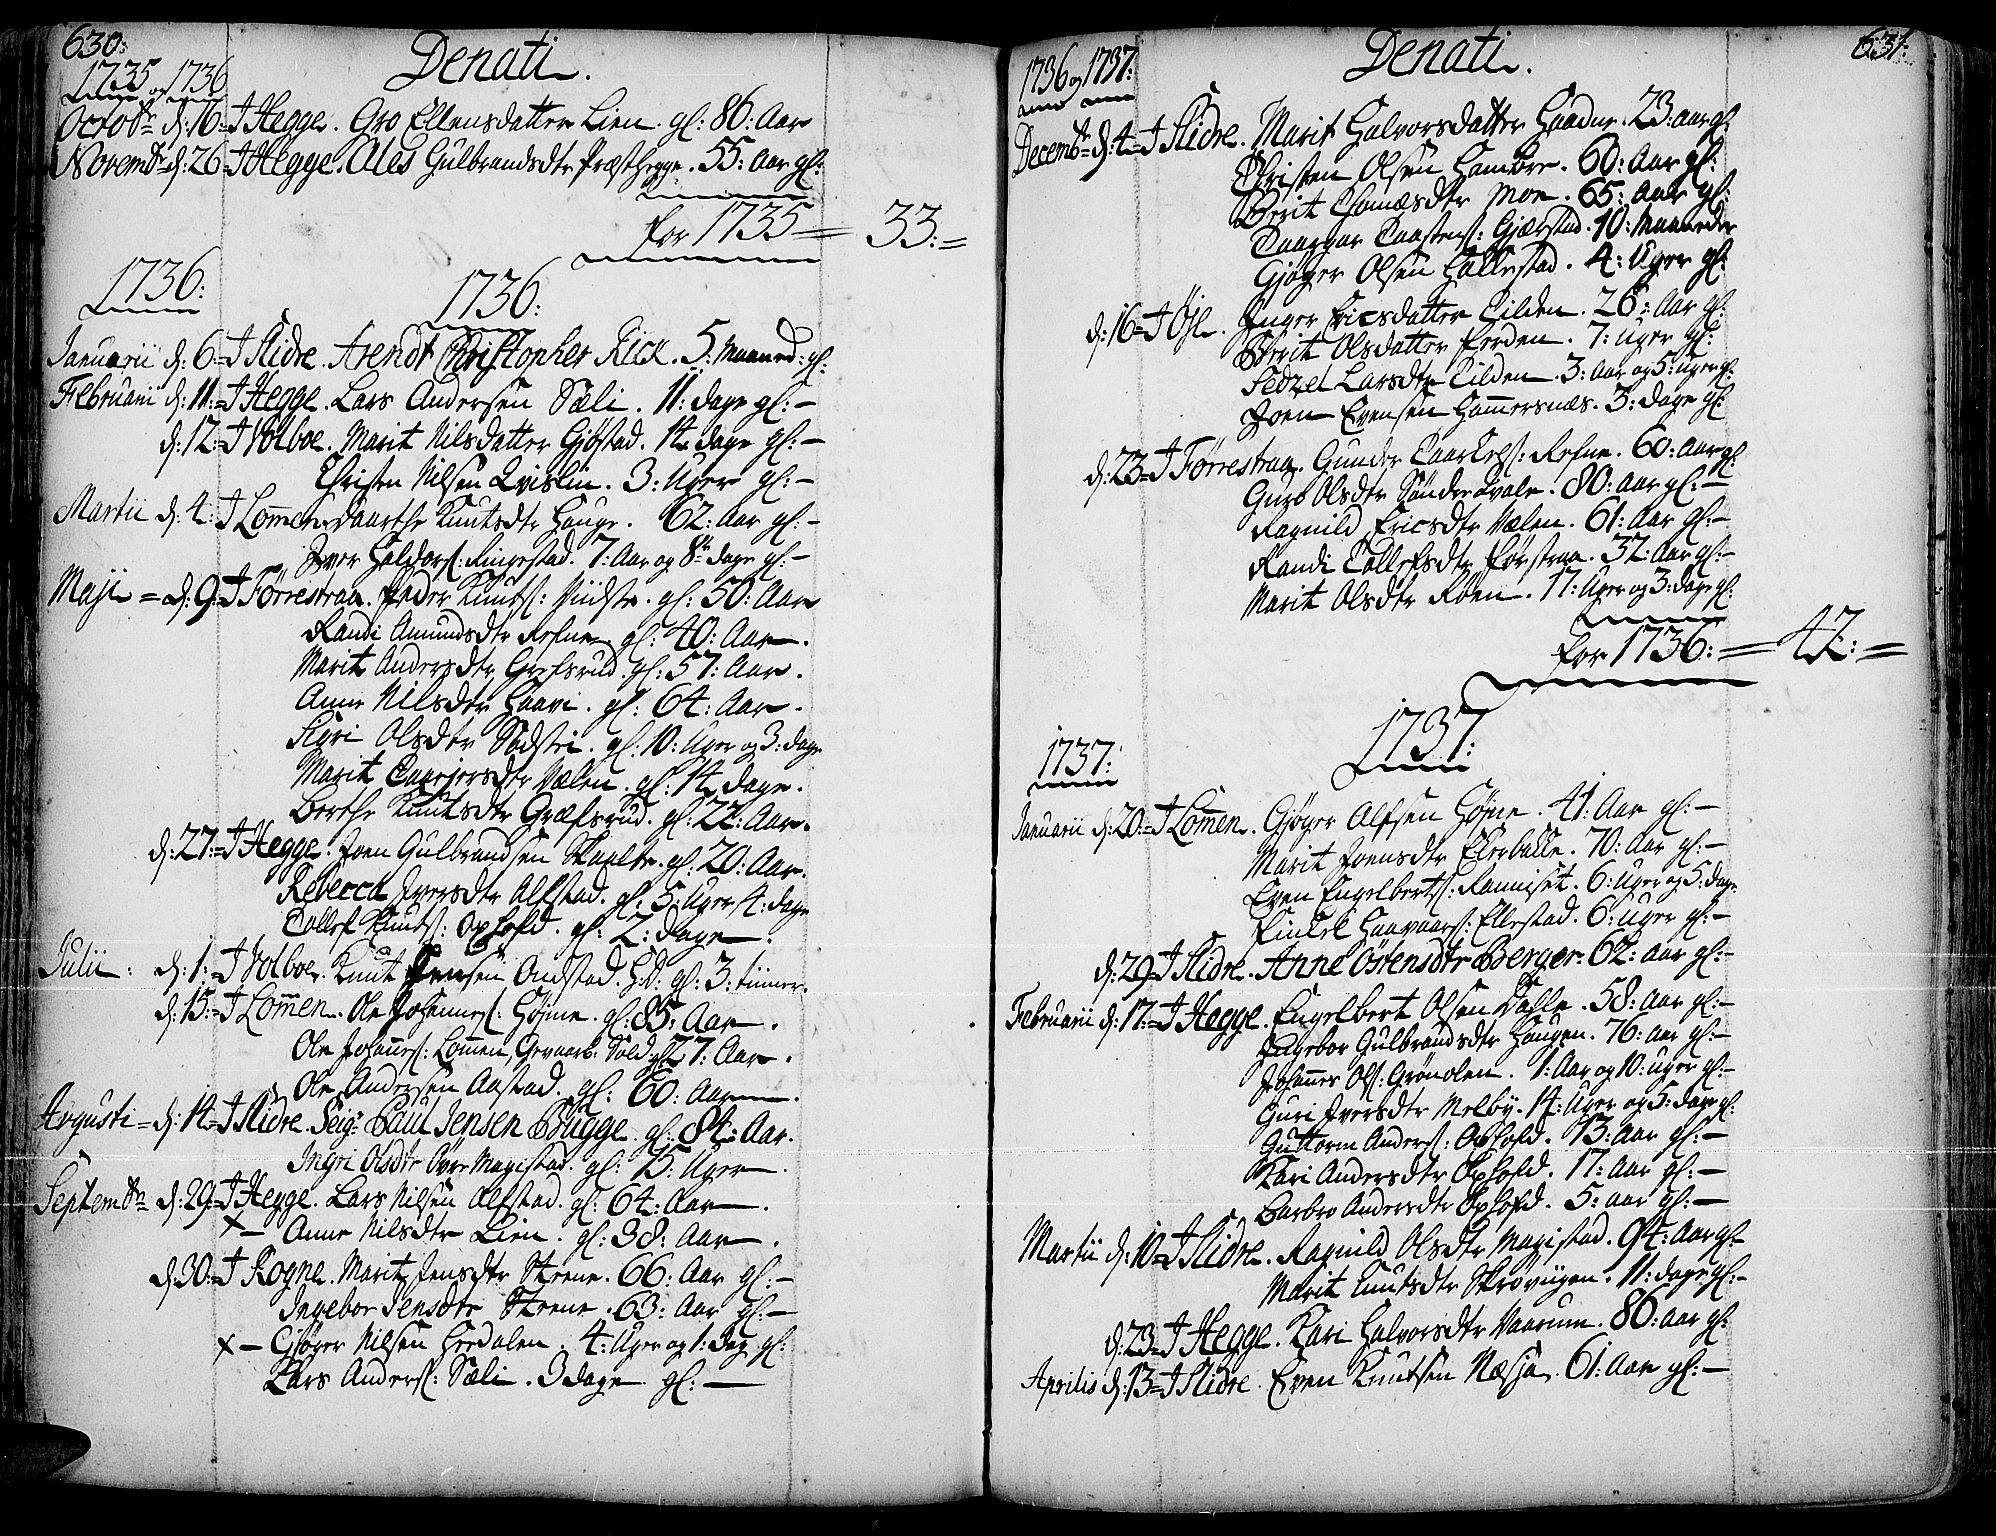 630:
Denati.
1735 og 1736
Octobr d: 16 = J Hegge. Gro Ellensdatter Lien. gl: 86: Aar
Novembr d: 26 = J Hegge. Ales Gulbrandsdtr Præsthegge. 55: Aar gl:
for 1735 = 33: =
1736:
1736:
Januarii d: 6 = J Slidre. Arendt Christopher Rick. 5: Maaned: gl:
Februarii d: 11: = J Hegge. Lars Andersen Sæli. 11: dage gl: –
d: 12: = J Volboe. Marit Nilsdatter Gjøstad. 14 dage gl: –
Christen Nilsen Qvislin. 3: Uger gl: –
Martii d: 4: J Lom̄en. Baarthe Knutsdtr Hauge. 62: Aar gl: –
Iver Haldors: Ringestad. 7: Aar og 8te dage gl: –
Maji = d: 9: J Førrestraa. Peder Knuts: gl: 50: Aar
Randi Amundsdtr Refne. gl: 40: Aar.
Marit Andersdtr Græfsrud. gl: 57: Aar.
Anne Nilsdtr Haavi. gl: 64: Aar.
Sigri Olsdtr Sødstri. gl: 10: Uger og 3: dage
Marit Taarjersdtr Vælen. gl: 14 dage.
Berthe Knutsdtr Græfsrud. gl: 22: Aar.
d: 27: = J Hegge. Joen Gulbrandsen Skaltr. gl: 20: Aar.
Rebecca Iversdtr Alfstad. gl: 5: Uger 4: dage
Tollef Knuts: Ophofd. gl: 2: dage.
Julii: d: 1: = J Volboe. Knut Jensen Ondstad. H.D: gl: 3: timer.
d: 15: = J Lom̄en. Ole Johannes: Højne. gl: 85: Aar.
Ole Johan̄es: Lom̄en, Gevaarb: Sold gl: 77: Aar.
Ole Andersen Aastad. gl: 60: Aar.
Augusti = d: 12 = J Slidre. Seigr Paul Jensen Bugge. gl: 84: Aar.
Ingri Olsdtr Øvre Magistad. gl: 15: Uger.
Septembr d: 29 = J Hegge. Lars Nilsen Alfstad. gl: 64: Aar.
x – Anne Nilsdtr Lien. gl: 38: Aar.
d: 30: = J Rogne. Marit Jensdtr Steene. 66: Aar gl: –
Ingebor Jensdtr Steene. 63: Aar gl: –
x – Gjøger Nilsen Herdalen. 4: Uger og 1: Dag gl:
Lars Anders: Sæli. 3 dage gl: –
631:
Denati.
1736 og 1737:
Decembr d: 4 = J Slidre. Marit Halvorsdatter Haadne. 23: Aar gl:
Christen Olsen Hambre. 60: Aar gl:
Berit Thomæsdtr Moe. 65: Aar gl:
Taaggar Taastens: Gjærstad. 10: Maaneder
Gjøger Olsen Hallestad. 4: Uger gl:
d: 16 = J Øjl. Inger Ericsdatter Tilden. 26: Aar gl:
Berit Olsdatter Ferden. 7: Uger gl:
Sedzel Larsdtr Tilden. 3: Aar og 5: Uger gl:
Joen Evensen Ham̄ersnæs. 3: dage gl:
d: 23 = J Førrestraa. Gunder Taarkels: Refne. 60: Aar gl:
Guro Olsdtr Søndre Qvale. 80: Aar gl: –
Ragnild Ericsdtr Vælen. 61: Aar gl: –
Randi Tollefsdtr Førstraa. 32: Aar gl: –
Marit Olsdtr Røen. 17: Uger og 3: dage gl:
for 1736: = 47: =
1737:
1737:
Januarii d: 20: = J Lom̄en. Gjøger Alfsen Højne. 41: Aar gl: –
Marit Joensdtr Elerballe. 70: Aar gl: –
Even Engelberts: Ranniset. 6: Uger og 5: dage
Finkel Haavaars: Ellestad. 6: Uger gl: –
d: 29 = J Slidre. Anne Østensdtr Berger. 62: Aar gl: –
Februarii d: 17: = J Hegge. Engelbert Olsen Dahle. 58: Aar gl: –
Ingebor Gulbrandsdtr Haugen. 76: Aar gl: –
Johan̄es Ols: Grønolen. 1: Aar og 10: Uger gl: –
Guri Iversdtr Melby. 14: Uger og 5: dage gl:
Guttorm Anders: Ophofd. 13: Aar gl: –
Kari Andersdtr Ophofd. 17: Aar gl: –
Barbro Andersdtr Ophofd. 5: Aar gl: –
Martii d: 10 = J Slidre. Ragnild Olsdtr Magistad. 94: Aar gl: –
Marit Knutsdtr Skrøviigen. 11: dage gl: –
d: 23 = J Hegge. Kari Halvorsdtr Vaarum. 86: Aar gl:
Aprilis d: 13 = J Slidre. Even Knutsen Næsja. 61: Aar gl: –